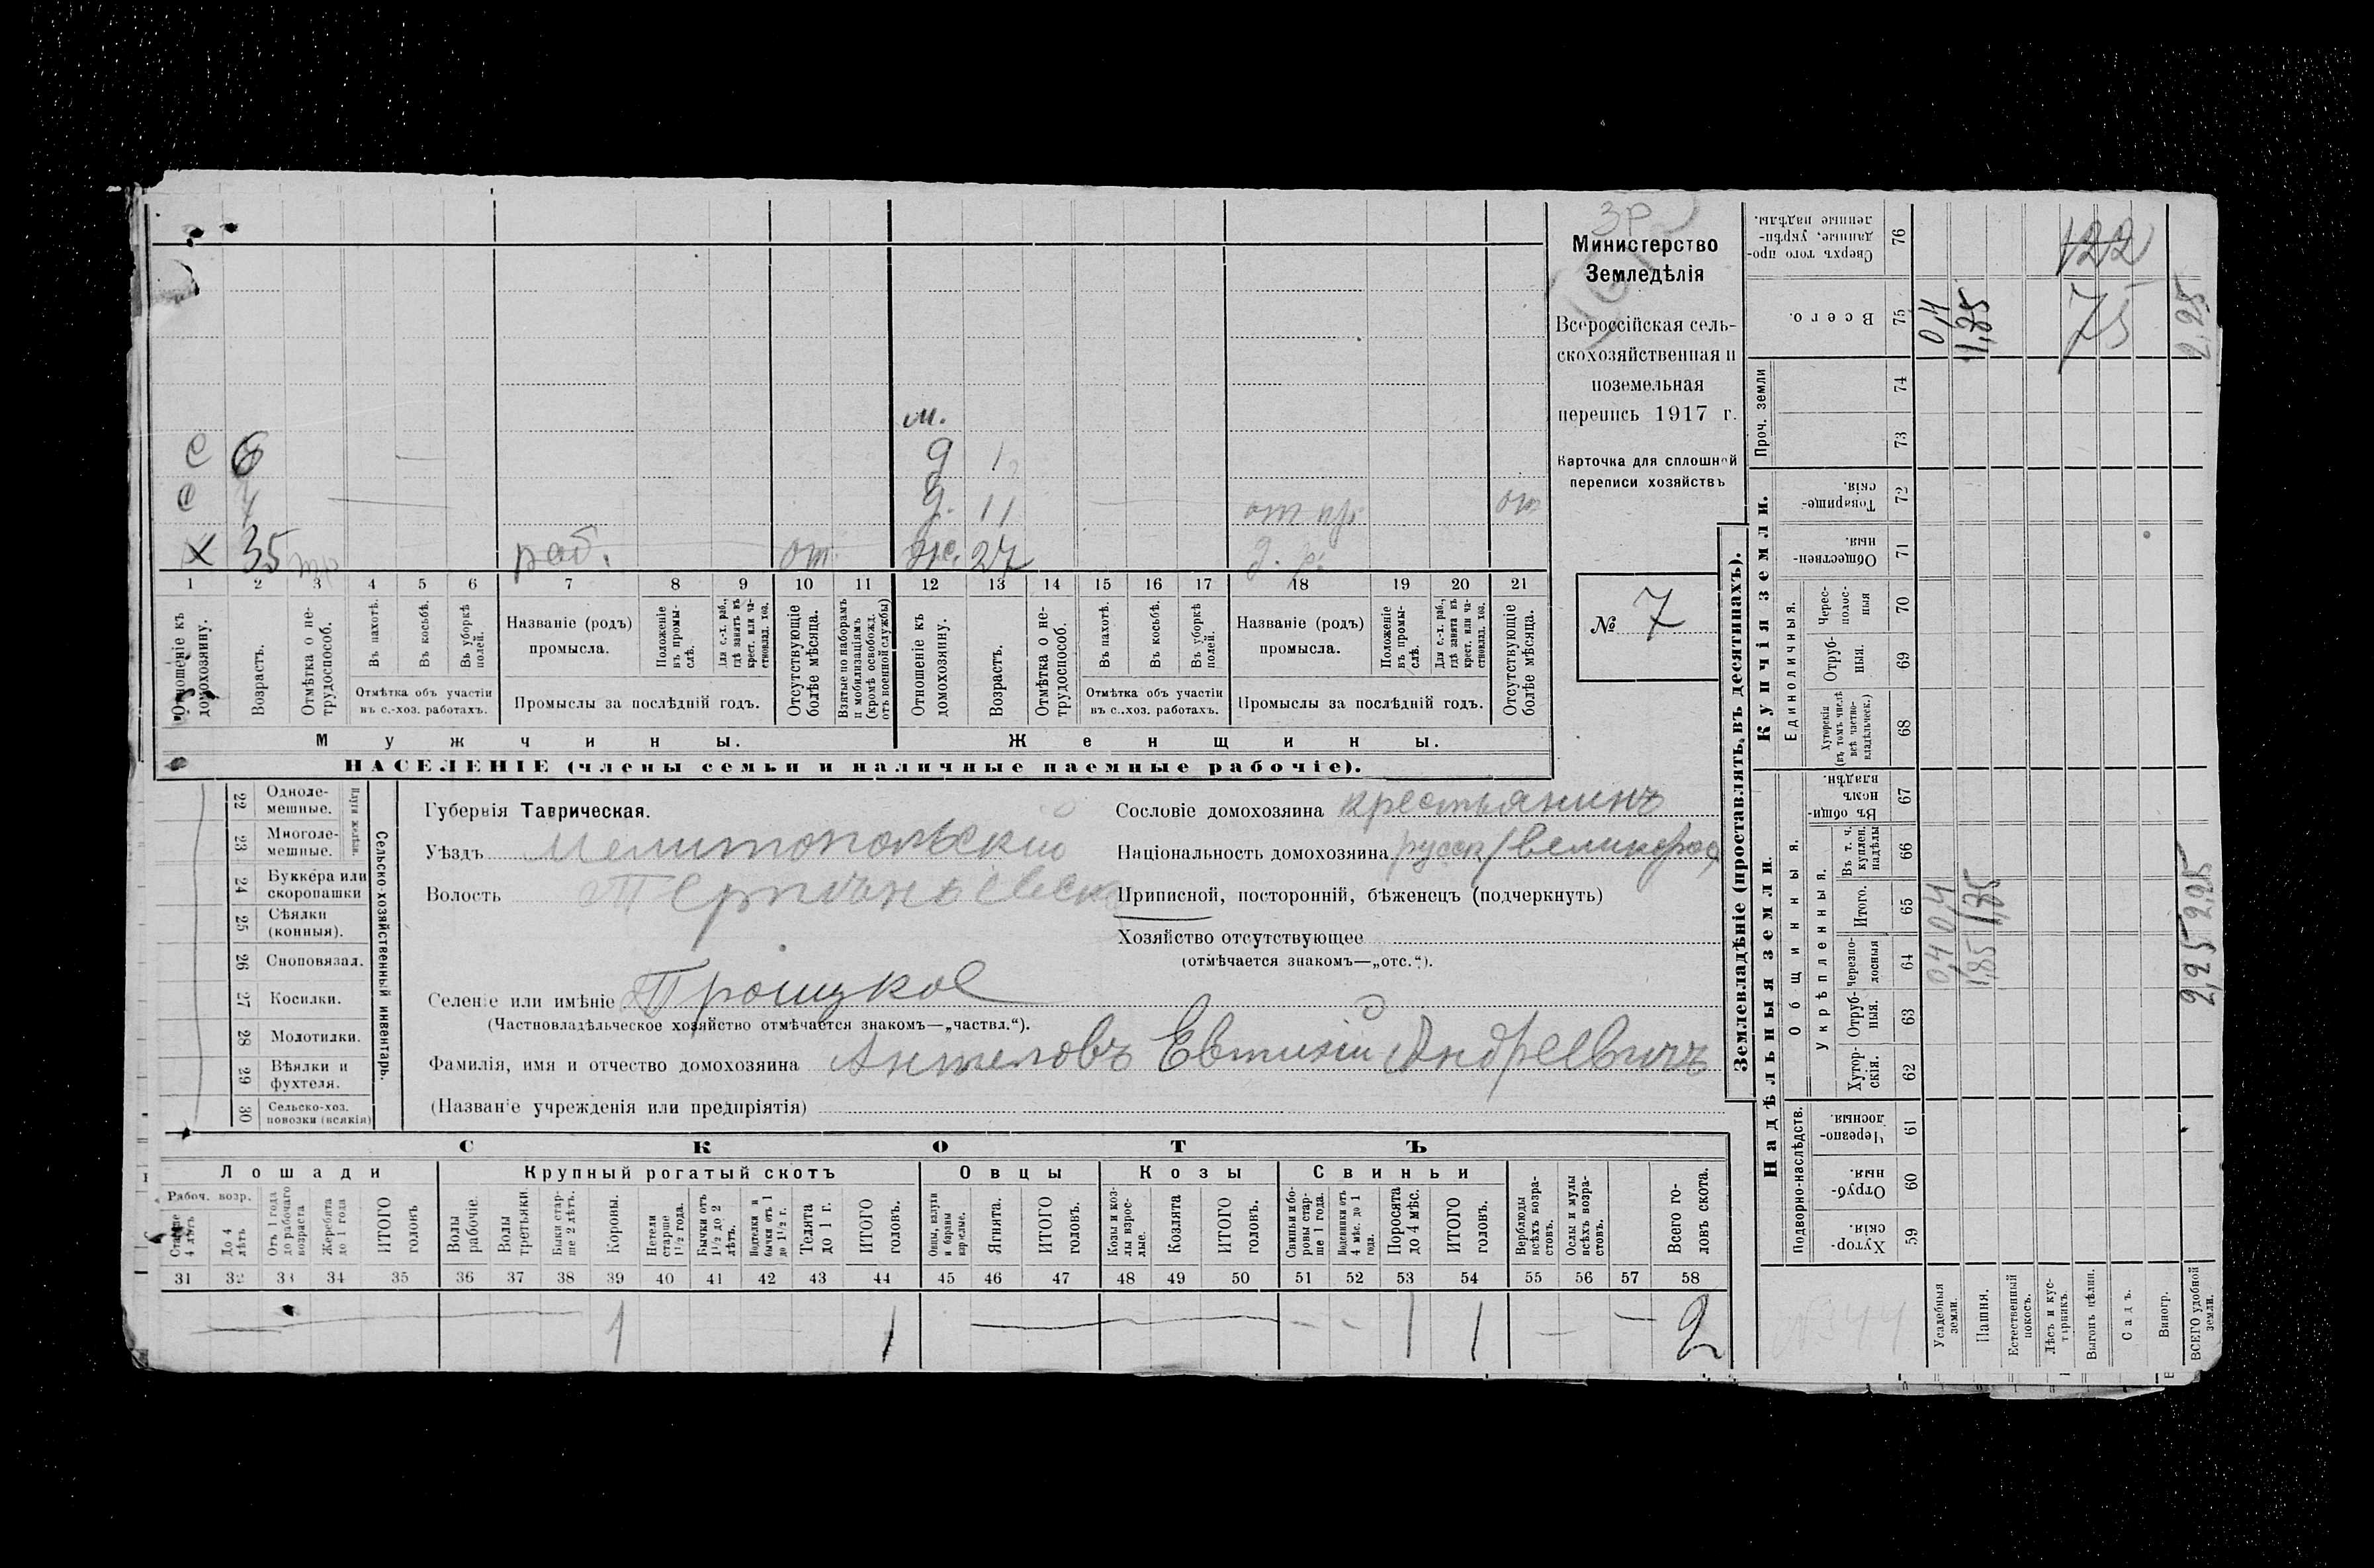 ЗР
Министерство
Земледѣлія
Всероссійская сель-
скохозяйственная и
поземельная
перепись 1917 г.
Карточка для сплошной
переписи хозяйствъ
№ 7
м.
с 6 д 1
с 4 д. 11 от
х 35 раб. от. ж. 27 д. р.
1 2 3 4 5 6 7 8 9 10 11 12 13 14 15 16 17 18 19 20 21
Отношеніе къ домохозяину.
Возрастъ.
Отмѣтка о не-трудоспособ.
Въ пахотѣ.
Въ косьбѣ.
Въ уборкѣ полей.
Отмѣтка объ участіи
въ с.-хоз. работахъ.
Названіе (родъ)
промысла.
Положеніе въ промы-слѣ.
Для с.-х. раб., гдѣ занятъ въ крест. или ча-стновлад. хоз.
Промыслы за послѣдній годъ.
Отсутствующіе болѣе мѣсяца.
Взятые по наборамъ и мобилизаціямъ (кромѣ освобожд. отъ военной службы)
Отношеніе къ домохозяину.
Возрастъ.
Отмѣтка о не-трудоспособ.
Въ пахотѣ.
Въ косьбѣ.
Въ уборкѣ полей.
Отмѣтка объ участіи
въ с.-хоз. работахъ.
Названіе (родъ)
промысла.
Положеніе въ промы-слѣ.
Для с.-х. раб., гдѣ занята въ крест. или ча-стновлад. хоз.
Промыслы за послѣдній годъ.
Отсутствующіе болѣе мѣсяца.
Мужчины. Женщины.
НАСЕЛЕНІЕ (члены семьи и наличные наемные рабочіе).
Сельско-хозяйственный инвентарь.
Плуги желѣзн.
22 Одноле-мешные.
23 Многоле-мешные.
24 Буккера или скоропашки
25 Сѣялки (конныя).
26 Сноповязал.
27 Косилки.
28 Молотилки.
29 Вѣялки и фухтеля.
30 Сельско-хоз. повозки (всякія)
Губернія Таврическая.
Уѣздъ Мелитопольскій
Волость
Селеніе или имѣніе Троицкое
(Частновладѣльческое хозяйство отмѣчается знакомъ—„частвл.“).
Фамилія, имя и отчество домохозяина Ангеловъ Евтихій Андреевичъ
(Названіе учрежденія или предпріятія)
Сословіе домохозяина крестьянинъ
Національность домохозяина русск/великорос
Приписной, посторонній, бѣженецъ (подчеркнуть)
Хозяйство отсутствующее
(отмѣчается знакомъ—„отс.“).
СКОТЪ
Лошади Крупный рогатый скотъ Овцы Козы Свиньи
Рабоч. возр.
Старше 4 лѣтъ
До 4 лѣтъ
Отъ 1 года до рабочаго возраста
Жеребята до 1 года
ИТОГО головъ
Волы рабочіе.
Волы третьяки.
Быки стар-ше 2 лѣтъ.
Коровы.
Нетели старше 1½ года.
Бычки отъ 1½ до 2 лѣтъ.
Нетелки и бычки отъ 1 до 1½ г.
Телята до 1 г.
ИТОГО головъ.
Овцы, валухи и бараны взрослые.
Ягнята.
ИТОГО головъ.
Козы и коз-лы взрос-лые.
Козлята
ИТОГО головъ.
Свиньи и бо-ровы стар-ше 1 года.
Подсвинки отъ 4 мѣс. до 1 года.
Поросята до 4 мѣс.
ИТОГО головъ.
Верблюды всѣхъ возра-стовъ.
Ослы и мулы всѣхъ возра-стовъ.
Всего го-ловъ скота.
31 32 33 34 35 36 37 38 39 40 41 42 43 44 45 46 47 48 49 50 51 52 53 54 55 56 57 58
1 1 1 1 2
Землевладѣніе (проставлять въ десятинахъ).
Купчія земли.
Надѣльныя земли.
Сверхъ того про-данные, укрѣп-ленные надѣлы. 76 122
Всего. 75 0,4 1,85 75 2,25
Проч. земли 74
73
Товарище-скія. 72
Обществен-ныя. 71
Единоличныя.
Черес-полос-ныя 70
Отруб-ныя. 69
Хуторскія (въ томъ числѣ всѣ частно-владѣльческ.) 68
Общинныя.
Въ общи-номъ владѣн. 67
Укрѣпленныя.
Въ т. ч. куплен. надѣлы 66
Итого. 65 0,4 1,85 2,25
Черезпо-лосныя 64 0,4 1,85 2,25
Отруб-ныя. 63
Хутор-скія. 62
Подворно-наслѣдств.
Черезпо-лосныя. 61
Отруб-ныя. 60
Хутор-скія. 59
Усадебныя земли.
Пашня.
Естественный покосъ.
Лѣсъ и кус-тарникъ.
Выгонъ цѣлин.
Садъ.
Виногр.
ВСЕГО удобной земли.
№344